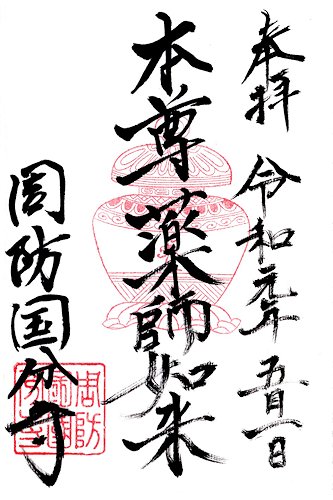 奉拝 令和元年 五月一日
本尊薬師如来
周防国分寺